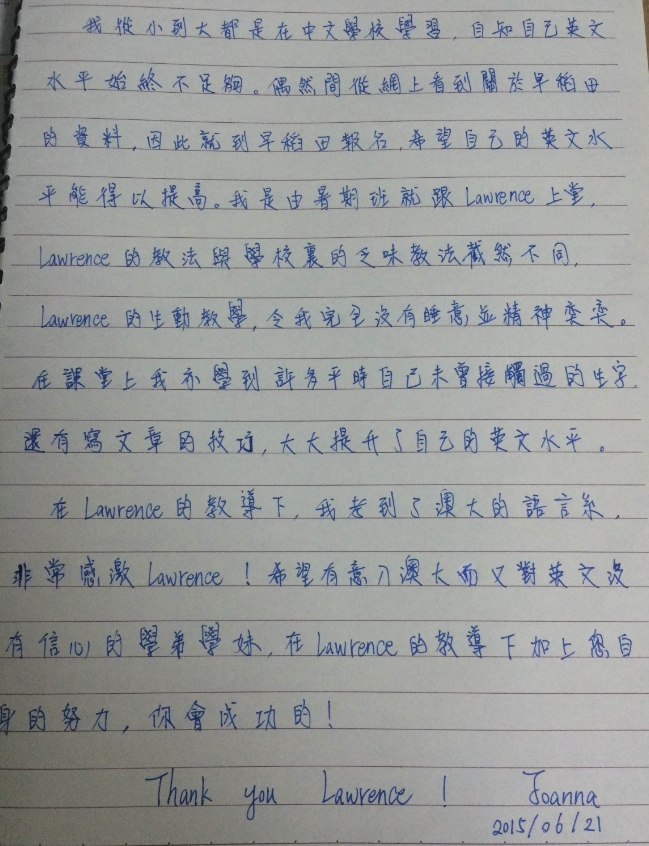 我從小到大都是在中文學校學習，自知自己英文
水平始終不足夠。偶然間從網上看到關於早稻田
的資料，因此就到早稻田報名，希望自己的英文水
平能得以提高。我是由暑期班就跟Lawrence上堂，
Lawrence的教法與學校裏的乏味教法截然不同，
Lawrence的生動教學，令我完全沒有睡意並精神奕奕。
在課堂上我亦學到許多平時自己未曾接觸過的生字，
還有寫文章的技巧，大大提升了自己的英文水平。
在Lawrence的教導下，我考到了澳大的語言系，
非常感激Lawrence！希望有意入澳大而又對英文沒
有信心的學弟學妹，在Lawrence的教導下加上您自
身的努力，你會成功的！
Thank you Lawrence！ Joanna
2015/06/21